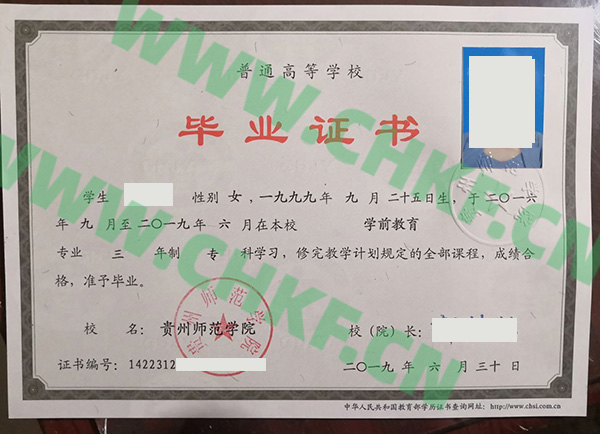 普通高等学校
毕业证书
学生 性别 女, 一九九九年 九 月 二十五日生, 于二〇一六
年 九 月至二〇一九年 六 月在本校 学前教育
专业 三 年制 专 科学习, 修完教学计划规定的全部课程, 成绩合
格, 准予毕业。
校 名: 贵州师范学院
校 (院) 长:
贵州师范学院
证书编号: 1422312
二〇一九 年 六 月 三十 日
中华人民共和国教育部学历证书查询网址: http://www.chsi.com.cn
WWW.CHKF.CN
WWW.CHKF.CN
WWW.CHKF.CN